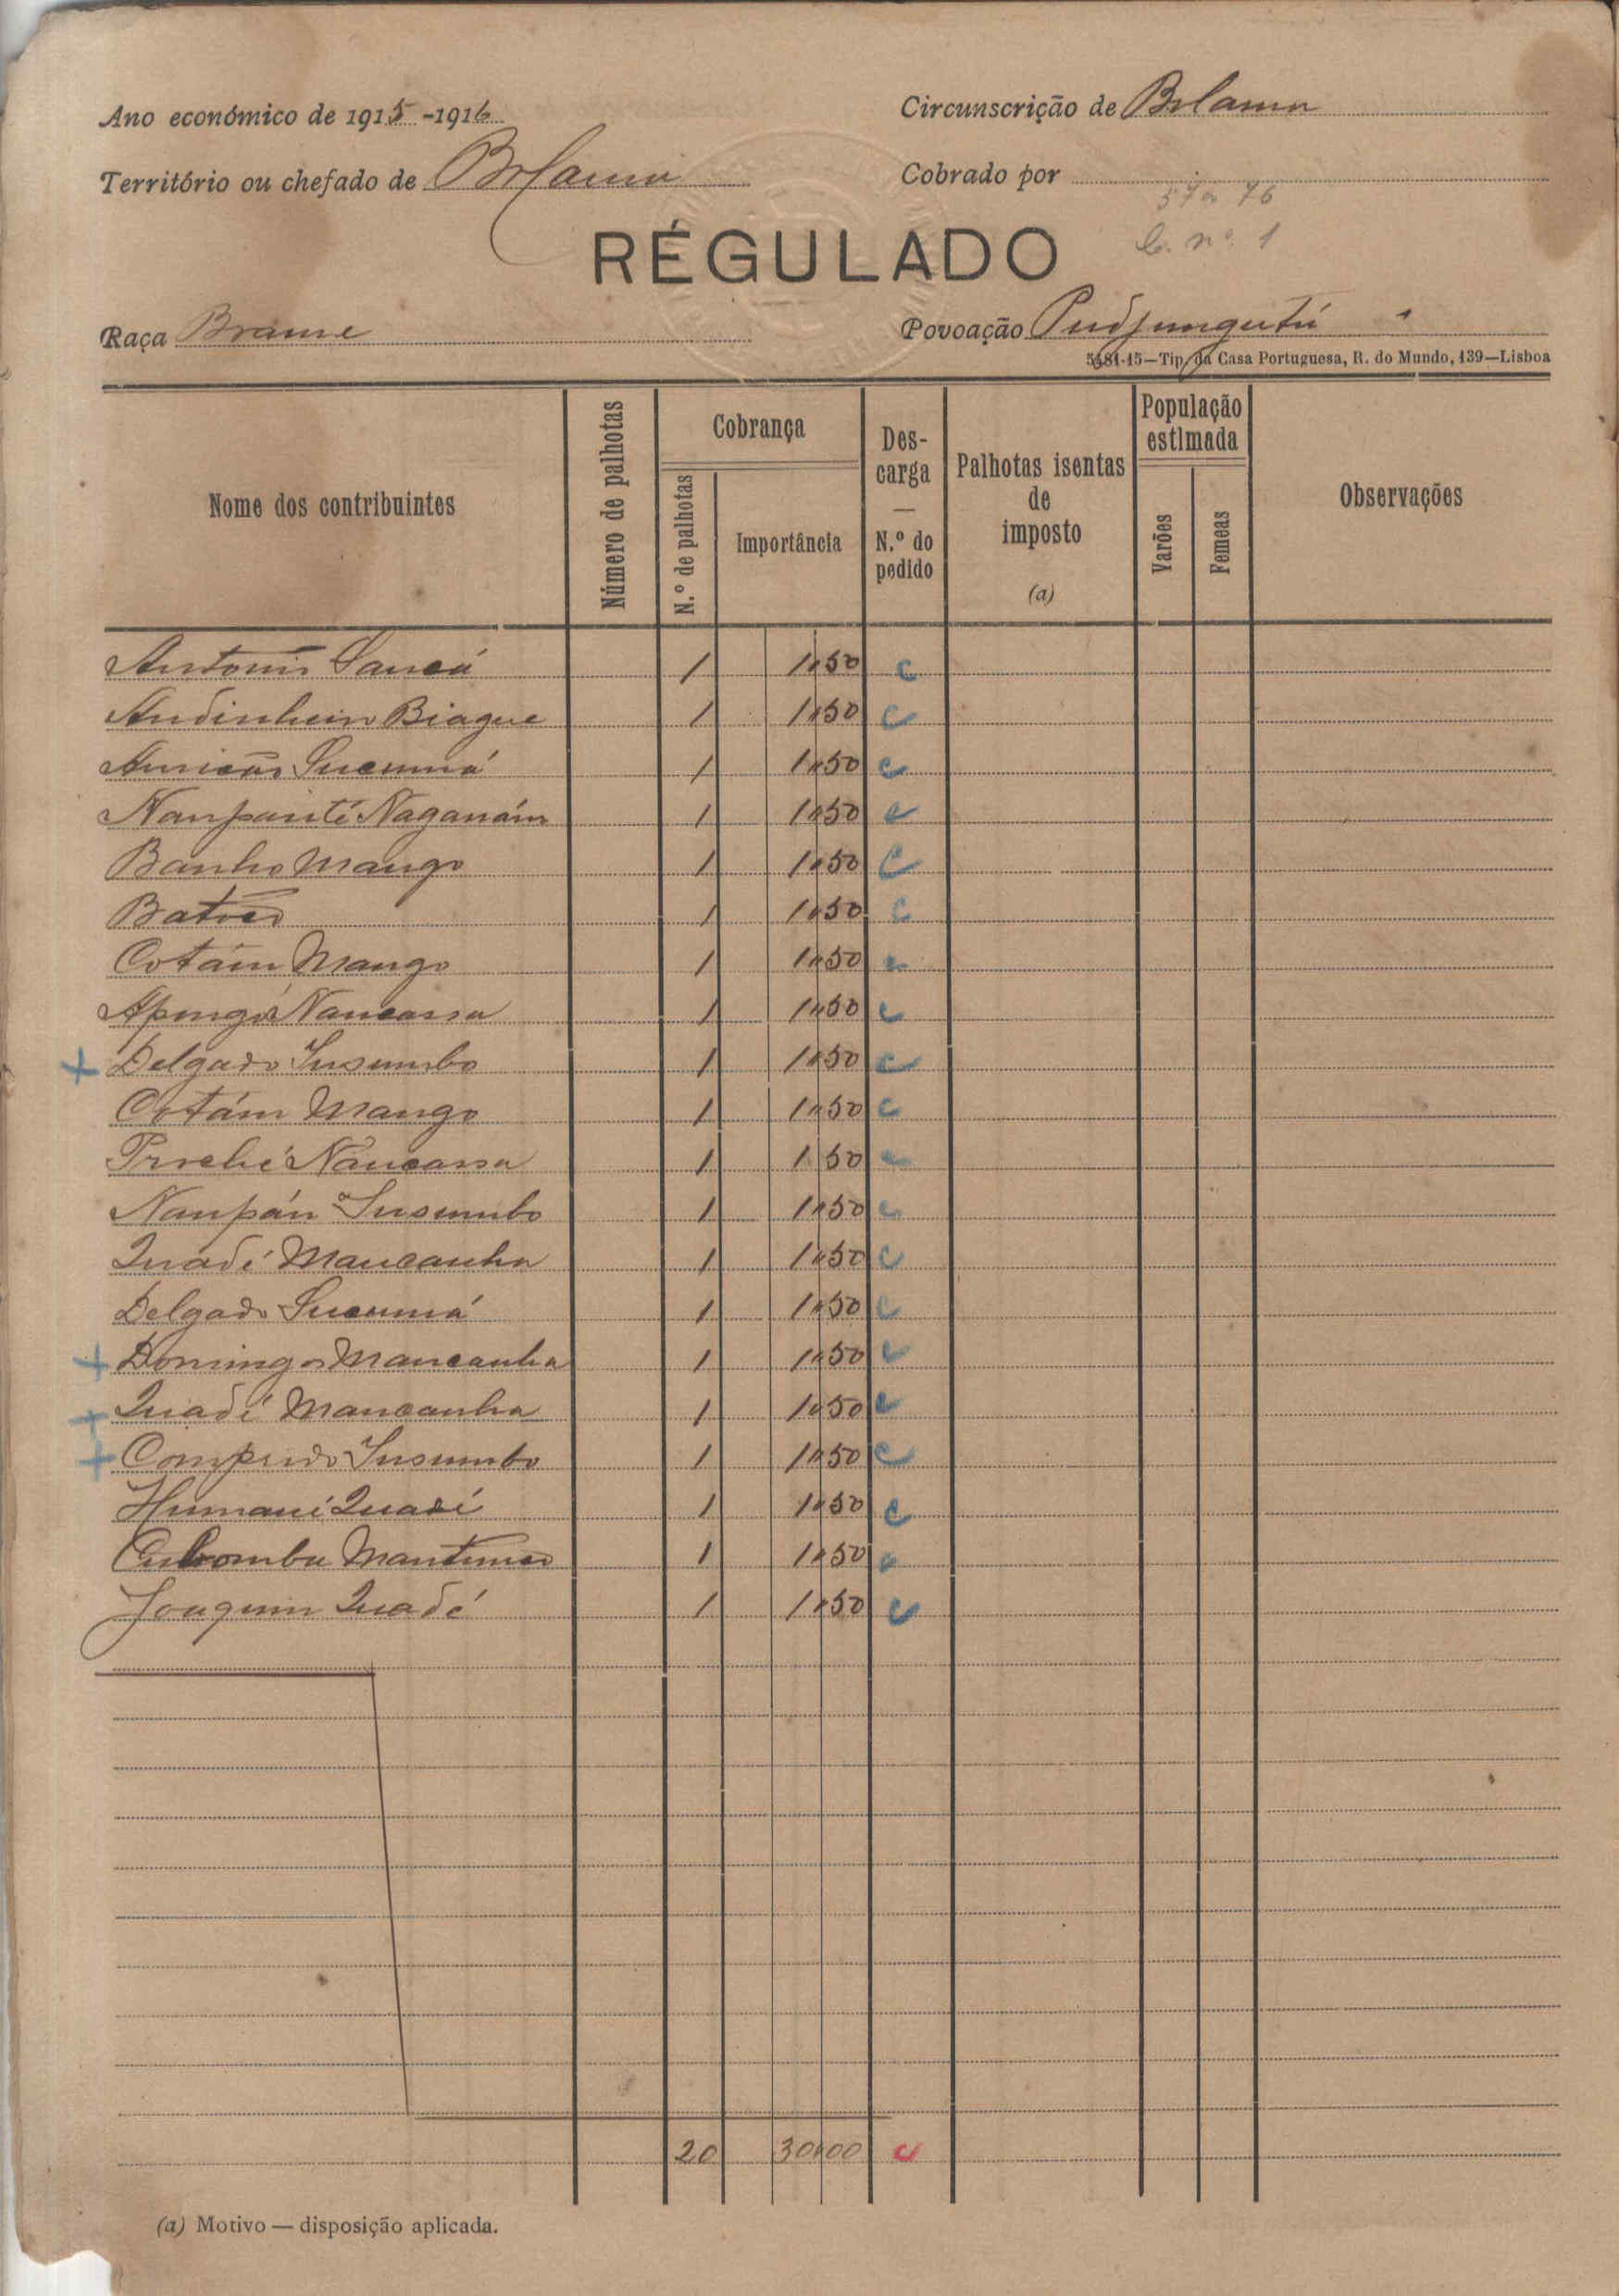 Ano económico de 1915-1916
Circunscrição de Bolama
Território ou chefado de Bolama
Cobrado por
37 a 76
L. nº 1
RÉGULADO
Raça Brame
Povoação
5481-15—Tip. da Casa Portuguesa, R. do Mundo, 139—Lisboa
Nome dos contribuintes
Número de palhotas
Cobrança
N.º de palhotas
Importância
Descarga — N.º do pedido
Palhotas isentas de imposto (a)
População estimada
Varões
Femeas
Observações
Antonio 1 1$50 c
Biague 1 1$50 c
1 1$50 c
1 1$50 c
Banho Mango 1 1$50 c
1 1$50 c
Cotám Mango 1 1$50 c
Nancassa 1 1$50 c
+ Delgado Insumbo 1 1$50 c
Cotám Mango 1 1$50 c
Nancassa 1 1 50 c
Nanpán Insumbo 1 1$50 c
Quadé Mancanha 1 1$50 c
Delgado 1 1$50 c
+ Domingos Mancanha 1 1$50 c
+ Quadé Mancanha 1 1$50 c
+ Comprido Insumbo 1 1$50 c
Quadé 1 1$50 c
1 1$50 c
Joaquim Quadé 1 1$50 c
20 30$00 c
(a) Motivo — disposição aplicada.